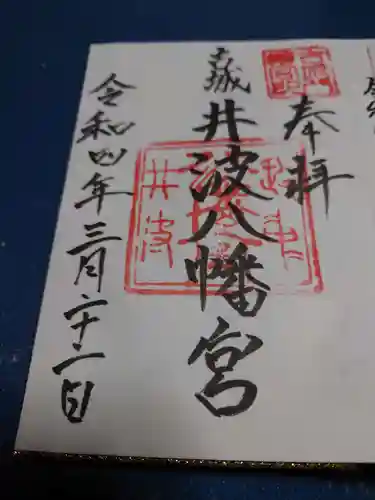 奉拝
井波八幡宮
令和四年三月二十二日
井波